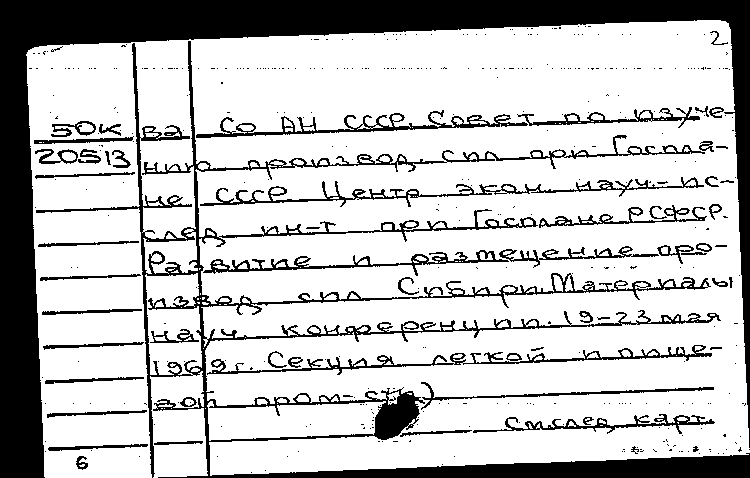 2
50к ва Со АН СССР. Совет по изуче-
20513 нию производ. сил при Госпла-
не СССР Центр экон. науч.-ис-
след. ин-т при Госплане РСФСР.
Развитие и размещение про-
извод. сил Сибири. Материалы
науч. конференции. 19-23 мая
1969г. Секция легкой и пище-
вой пром-сти)
См.след. карт.
6